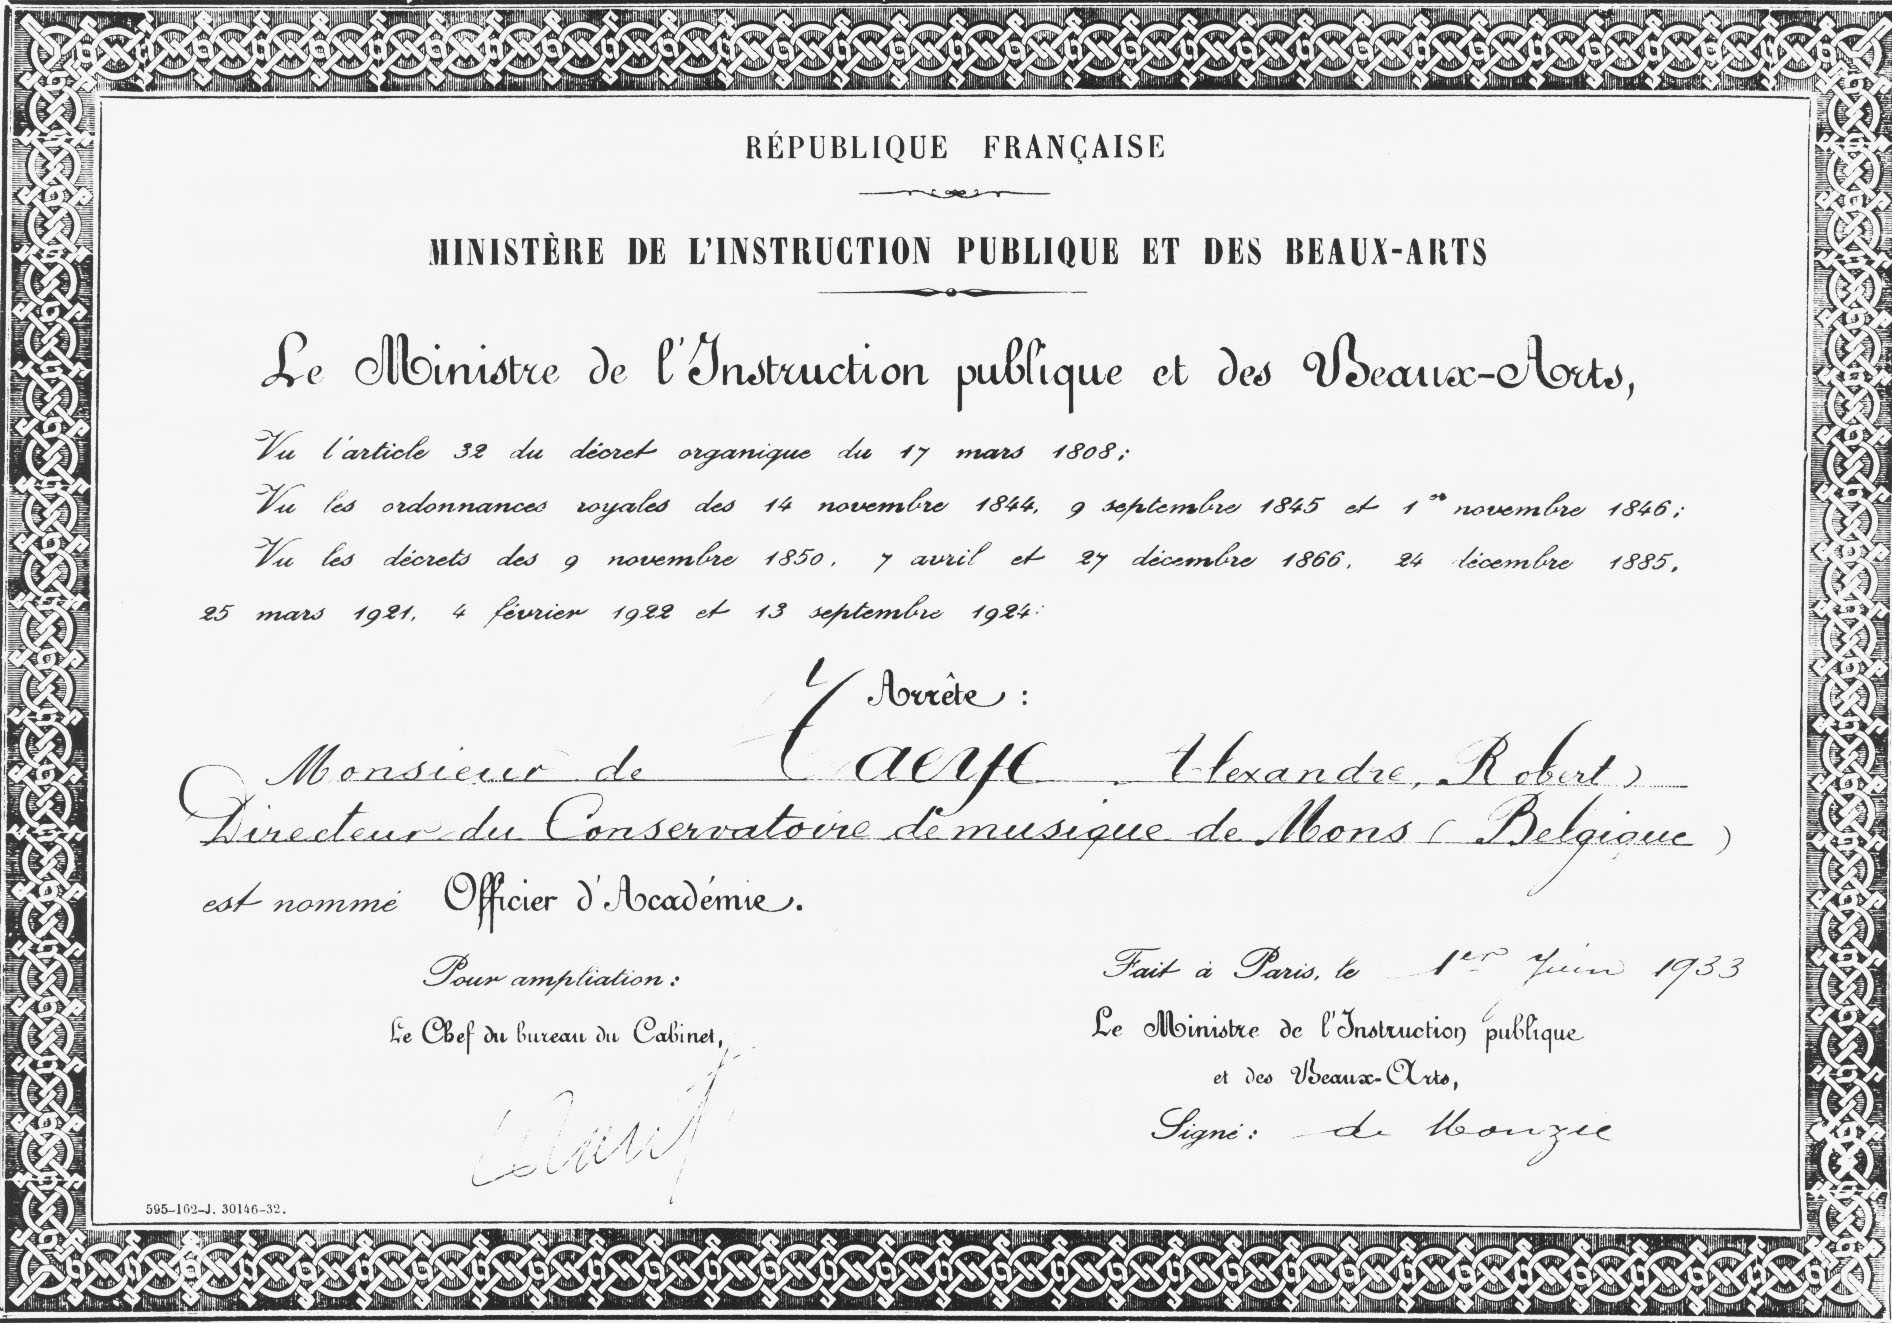 RÉPUBLIQUE FRANÇAISE
MINISTÈRE DE L'INSTRUCTION PUBLIQUE ET DES BEAUX-ARTS
Le Ministre de l'Instruction publique et des Beaux-Arts,
Vu l'article 32 du décret organique du 17 mars 1808;
Vu les ordonnances royales des 14 novembre 1844, 9 septembre 1845 et 1er novembre 1846;
Vu les décrets des 9 novembre 1850, 7 avril et 27 décembre 1866, 24 décembre 1885,
25 mars 1921, 4 février 1922 et 13 septembre 1924:
Arrête :
Monsieur de Taeye Alexandre, Robert
Directeur du Conservatoire de musique de Mons (Belgique)
est nommé Officier d'Académie.
Pour ampliation:
Le Chef du bureau du Cabinet,
Fait à Paris, le 1er Juin 1933
Le Ministre de l'Instruction publique
et des Beaux-Arts,
Signé: de Monzie
595-162-J. 30146-32.